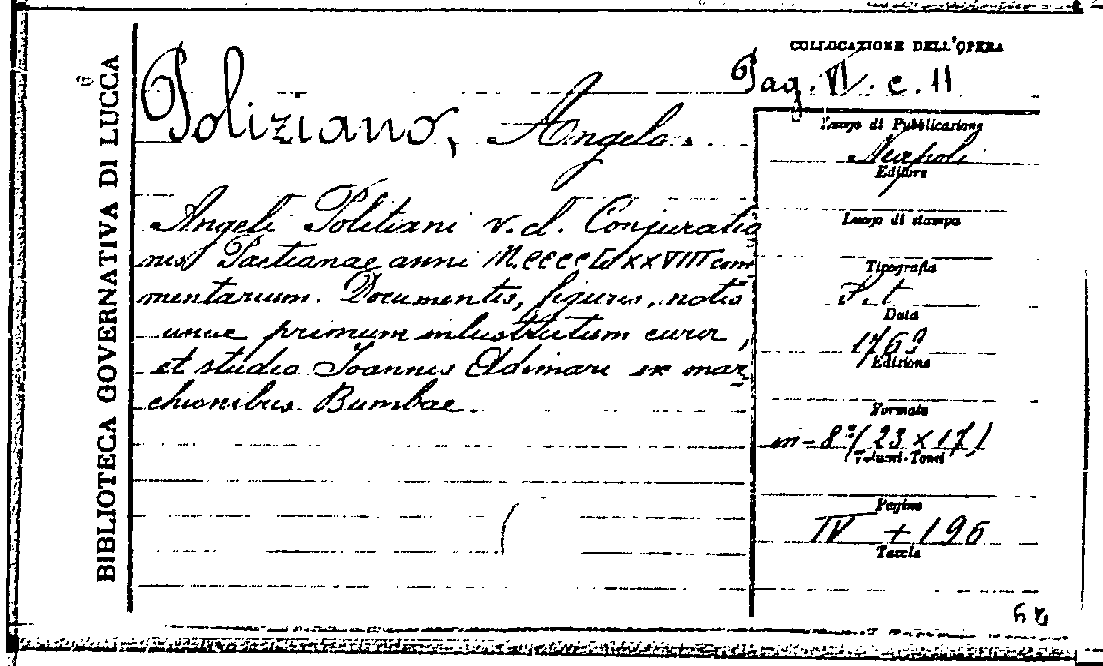 BIBLIOTECA GOVERNATIVA DI LUCCA
COLLOCAZIONE DELL'OPERA
Pag. VI. c. 11
Poliziano, Angelo.
Angeli Politiani v. cl. Conjuratio
nis Pactianae anni M.CCCCLXXVIII com
mentarium. Documentis, figuris, notis
nunc primum inlustratum cura
et studio Joannis Adimari ex mar
chionibus Bumbae
Luogo di Pubblicazione
Napoli
Editore
Luogo di stampa
Tipografia
S. t
Data
1769
Edizione
Formato
in-8º (23 x 17)
Volumi-Tomi
Pagine
IV + 196
Tavole